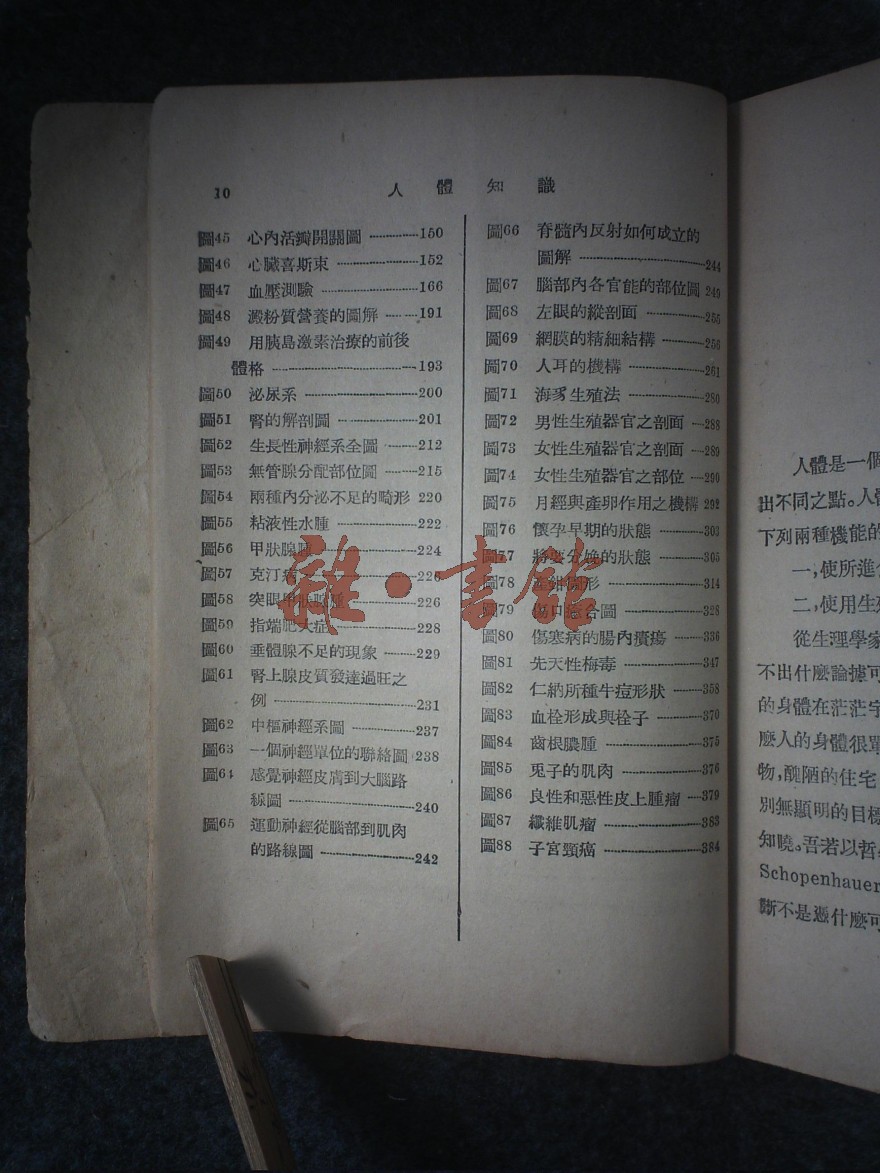 10 人體知識
圖45 心內活瓣開關圖 150
圖46 心臟喜斯束 152
圖47 血壓測驗 166
圖48 澱粉質營養的圖解 191
圖49 用胰島激素治療的前後
體格 193
圖50 泌尿系 200
圖51 腎的解剖圖 201
圖52 生長性神經系全圖 212
圖53 無管腺分配部位圖 215
圖54 兩種內分泌不足的畸形 220
圖55 粘液性水腫 222
圖56 甲狀腺腫 224
圖57 克汀病 226
圖58 突眼甲狀腺腫 226
圖59 指端肥大症 228
圖60 垂體腺不足的現象 229
圖61 腎上腺皮質發達過旺之
例 231
圖62 中樞神經系圖 237
圖63 一個神經單位的聯絡圖 238
圖64 感覺神經皮膚到大腦路
線圖 240
圖65 運動神經從腦部到肌肉
的路線圖 242
圖66 脊髓內反射如何成立的
圖解 244
圖67 腦部內各官能的部位圖 249
圖68 左眼的縱剖面 255
圖69 網膜的精細結構 256
圖70 人耳的機構 261
圖71 海豸生殖法 280
圖72 男性生殖器官之剖面 288
圖73 女性生殖器官之剖面 289
圖74 女性生殖器官之部位 290
圖75 月經與產卵作用之機構 292
圖76 懷孕早期的狀態 303
圖77 將要分娩的狀態 305
圖78 形 314
圖79 傷口癒合圖 328
圖80 傷塞病的腸內潰瘍 336
圖81 先天性梅毒 347
圖82 仁納所種牛痘形狀 358
圖83 血栓形成與栓子 370
圖84 齒根膿腫 375
圖85 兎子的肌肉 376
圖86 良性和惡性皮上腫瘤 379
圖87 纖維肌瘤 383
圖88 子宮頸癌 384
雜·書館
人體是一個
出不同之點。人體
下列兩種機能的
一，使所進
二，使用生
從生理學家
不出什麼論據可
的身體在茫茫宇
麽人的身體很單
物，醜陋的住宅
別無顯明的目標
知曉。吾若以哲
Schopenhauer
斷不是憑什麽可